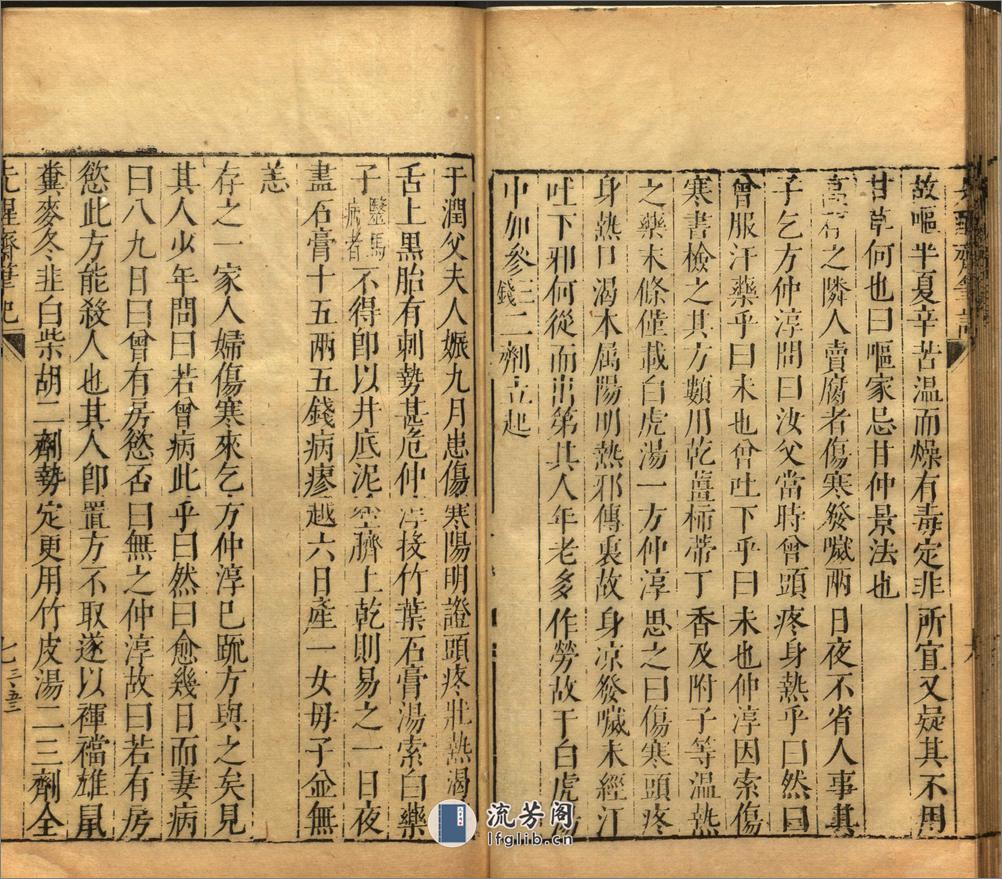 故嘔半夏辛苦温而燥有毒定非所宜又疑其不用
甘草何也曰嘔家忌甘仲景法也
高石之隣人賣腐者傷寒發噦兩日夜不省人事其
子乞方仲淳問曰汝父當時曾頭疼身熱乎曰然曰
曾服汗藥乎曰未也曾吐下乎曰未也仲淳因索傷
寒書檢之其方類用乾薑柿蒂丁香及附子等温熱
之藥末條僅載白虎湯一方仲淳思之曰傷寒頭疼
身熱口渴本属陽明熱邪傳裏故身凉發噦未經汗
吐下邪何從而出第其人年老多作勞故于白虎湯
中加參三錢二劑立起
于潤父夫人娠九月患傷寒陽明證頭疼壯熱渴
舌上黒胎有刺勢甚危仲淳投竹葉石膏湯索白藥
子醫馬病者不得卽以井底泥塗臍上乾則易之一日夜
盡石膏十五兩五錢病瘳越六日產一女母子並無
恙
存之一家人婦傷寒來乞方仲淳已䟽方與之矣見
其人少年問曰若曾病此乎曰然曰愈幾日而妻病
曰八九日曰曾有房慾否曰無之仲淳故曰若有房
慾此方能殺人也其人卽置方不取遂以褌襠雄鼠
糞麥冬韭白柴胡二劑勢定更用竹皮湯二三劑全
先醒齋筆記
七
三五三
流芳阁
lfglib.cn